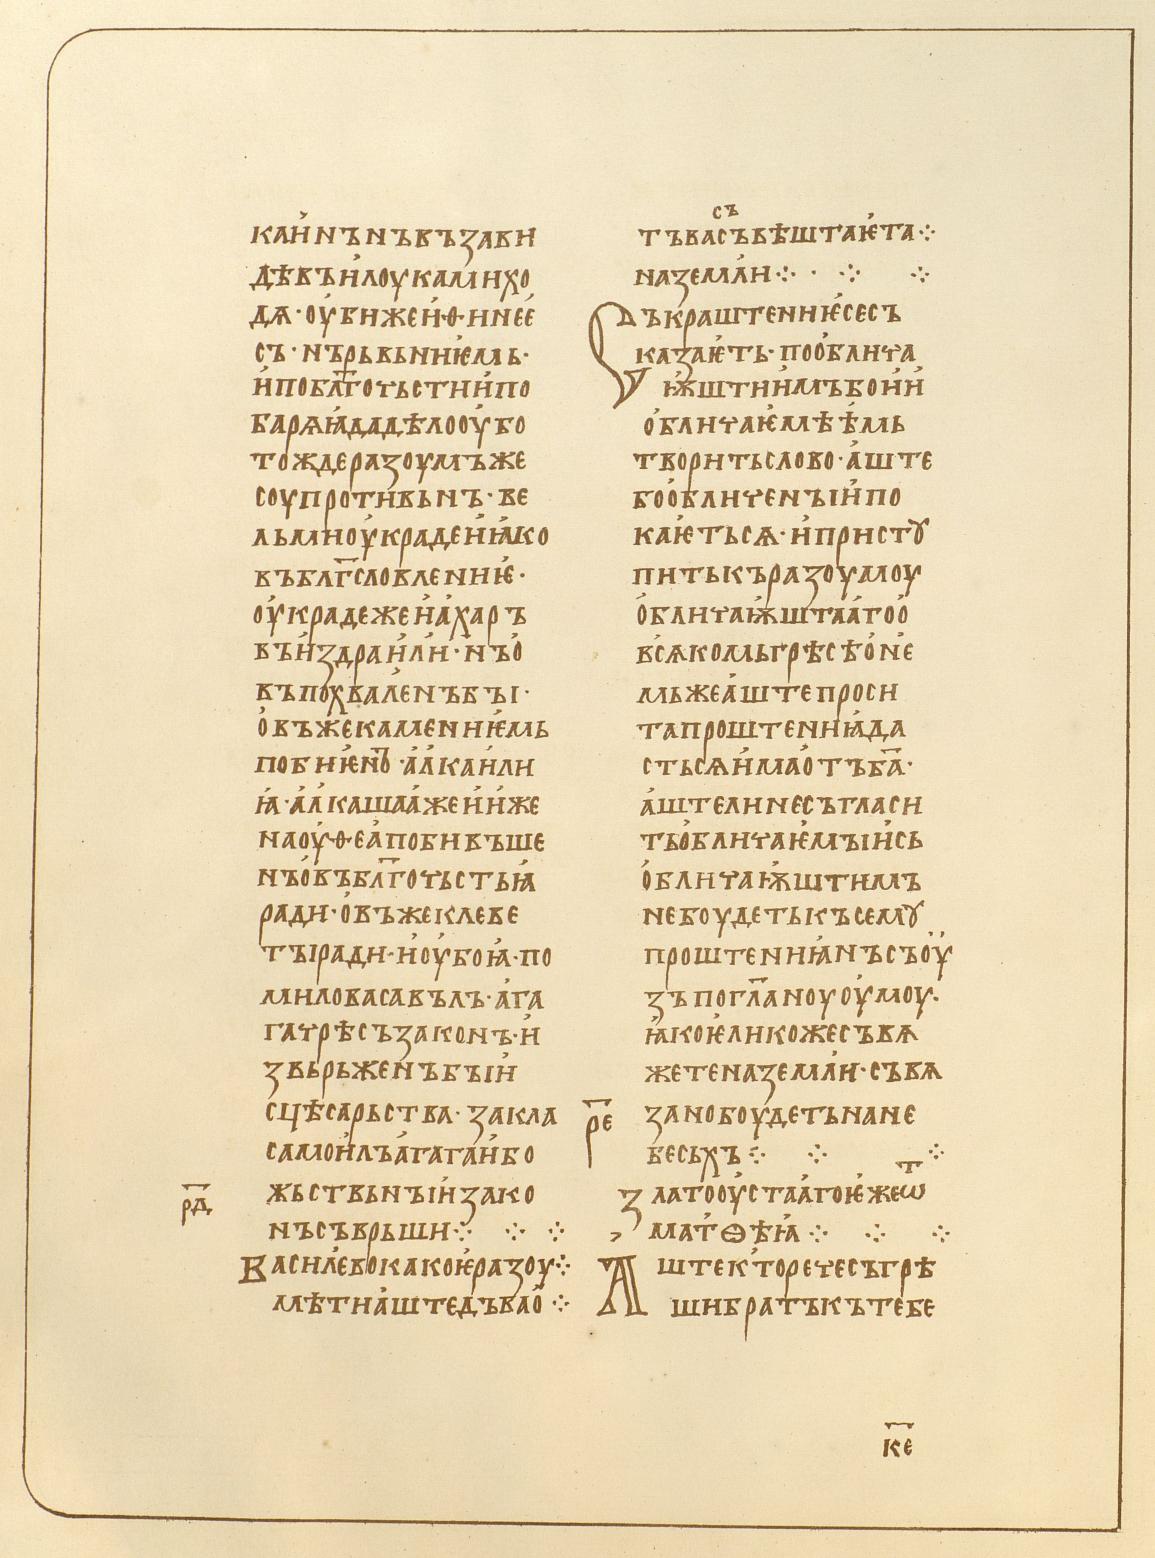 каи́нъ нъ въ зави
дѣ въ и́ лоуками хо
дѧ · оу́бижен́ ѳинеé
съ · нъ рьвьниѥ́мь ·
и́ по бл҃гоѹьстии́ по
барѧꙗ́ да дѣло оу́бо
тожде разоумъ же
соупротивьнъ · ве
льми оу́краден́ ꙗ́ко
въ бл҃гословлениѥ́ ·
оу́краде же и́ а́харъ
въ и́здраи́ли · нъ о́
въ похвале́нъ бы ·
о́въ же камениѥ́мь
побиѥ́нъ · а́лкаи́ли
ꙗ́ · а́лкаша а́же и́ иже
на оу́ѳеа́ побивъше
нъ о́въ бл҃гоѹьстьꙗ́
ради · о́въ же клеве
ты ради · и́ оу́боꙗ́ · по
милова саѵълъ · а́га
га ѹрѣсъ законъ · и́
звьрьженъ бы и́
сцѣсарьства · закла
самои́лъ а́гага и́ бо
жьствьныи́ зако
нъ съврьши ⁘ ⁘ ⁘
р҃д
Василе́во како ѥ́ разоу ⁘
мѣти а́ште дъва о́ ⁘
съ
тъ васъ вѣштаѥ́та ⁘
на земл́и ⁘ · ⁘ ⁘
Съкраштениѥ́ се съ
казаѥ́ть · по о́блиѹа
ѭ́штиим́ъ бо и́ и́
о́блиѹаѥ́мѣѥ́мь
творить слово · а́ште
бо о́блиѹеныи́ по
каѥ́тьсѧ · и́ пристꙋ
пить къ разоумоу
о́блиѹаѭ́штаа́го о́
всѧкомь грѣсѣ о́не
мь же а́ште проси
та прощтениꙗ́ да
стьсѧ и́ма о́тъ б҃а ·
а́ште ли не съгласи
ть о́блиѹаѥ́мыи́ сь
о́блиѹаѭ́штимъ
не боудеть къ семꙋ
проштениꙗ́ нъ съоу́
зъ по гл҃аноуоу́моу ·
ꙗ́ко ѥ́лико же съвѧ
жете на земл́и · съвѧ
зано боудеть на не
бесьхъ ⁘ ⁘ ⁘
р҃е
Златооу́стаа́го ѥ́же ѿ
матѳѣꙗ́ ⁘ ⁘ ⁘
А́ште к'то реѹе съгрѣ
ши братъ къ тебе
к҃е